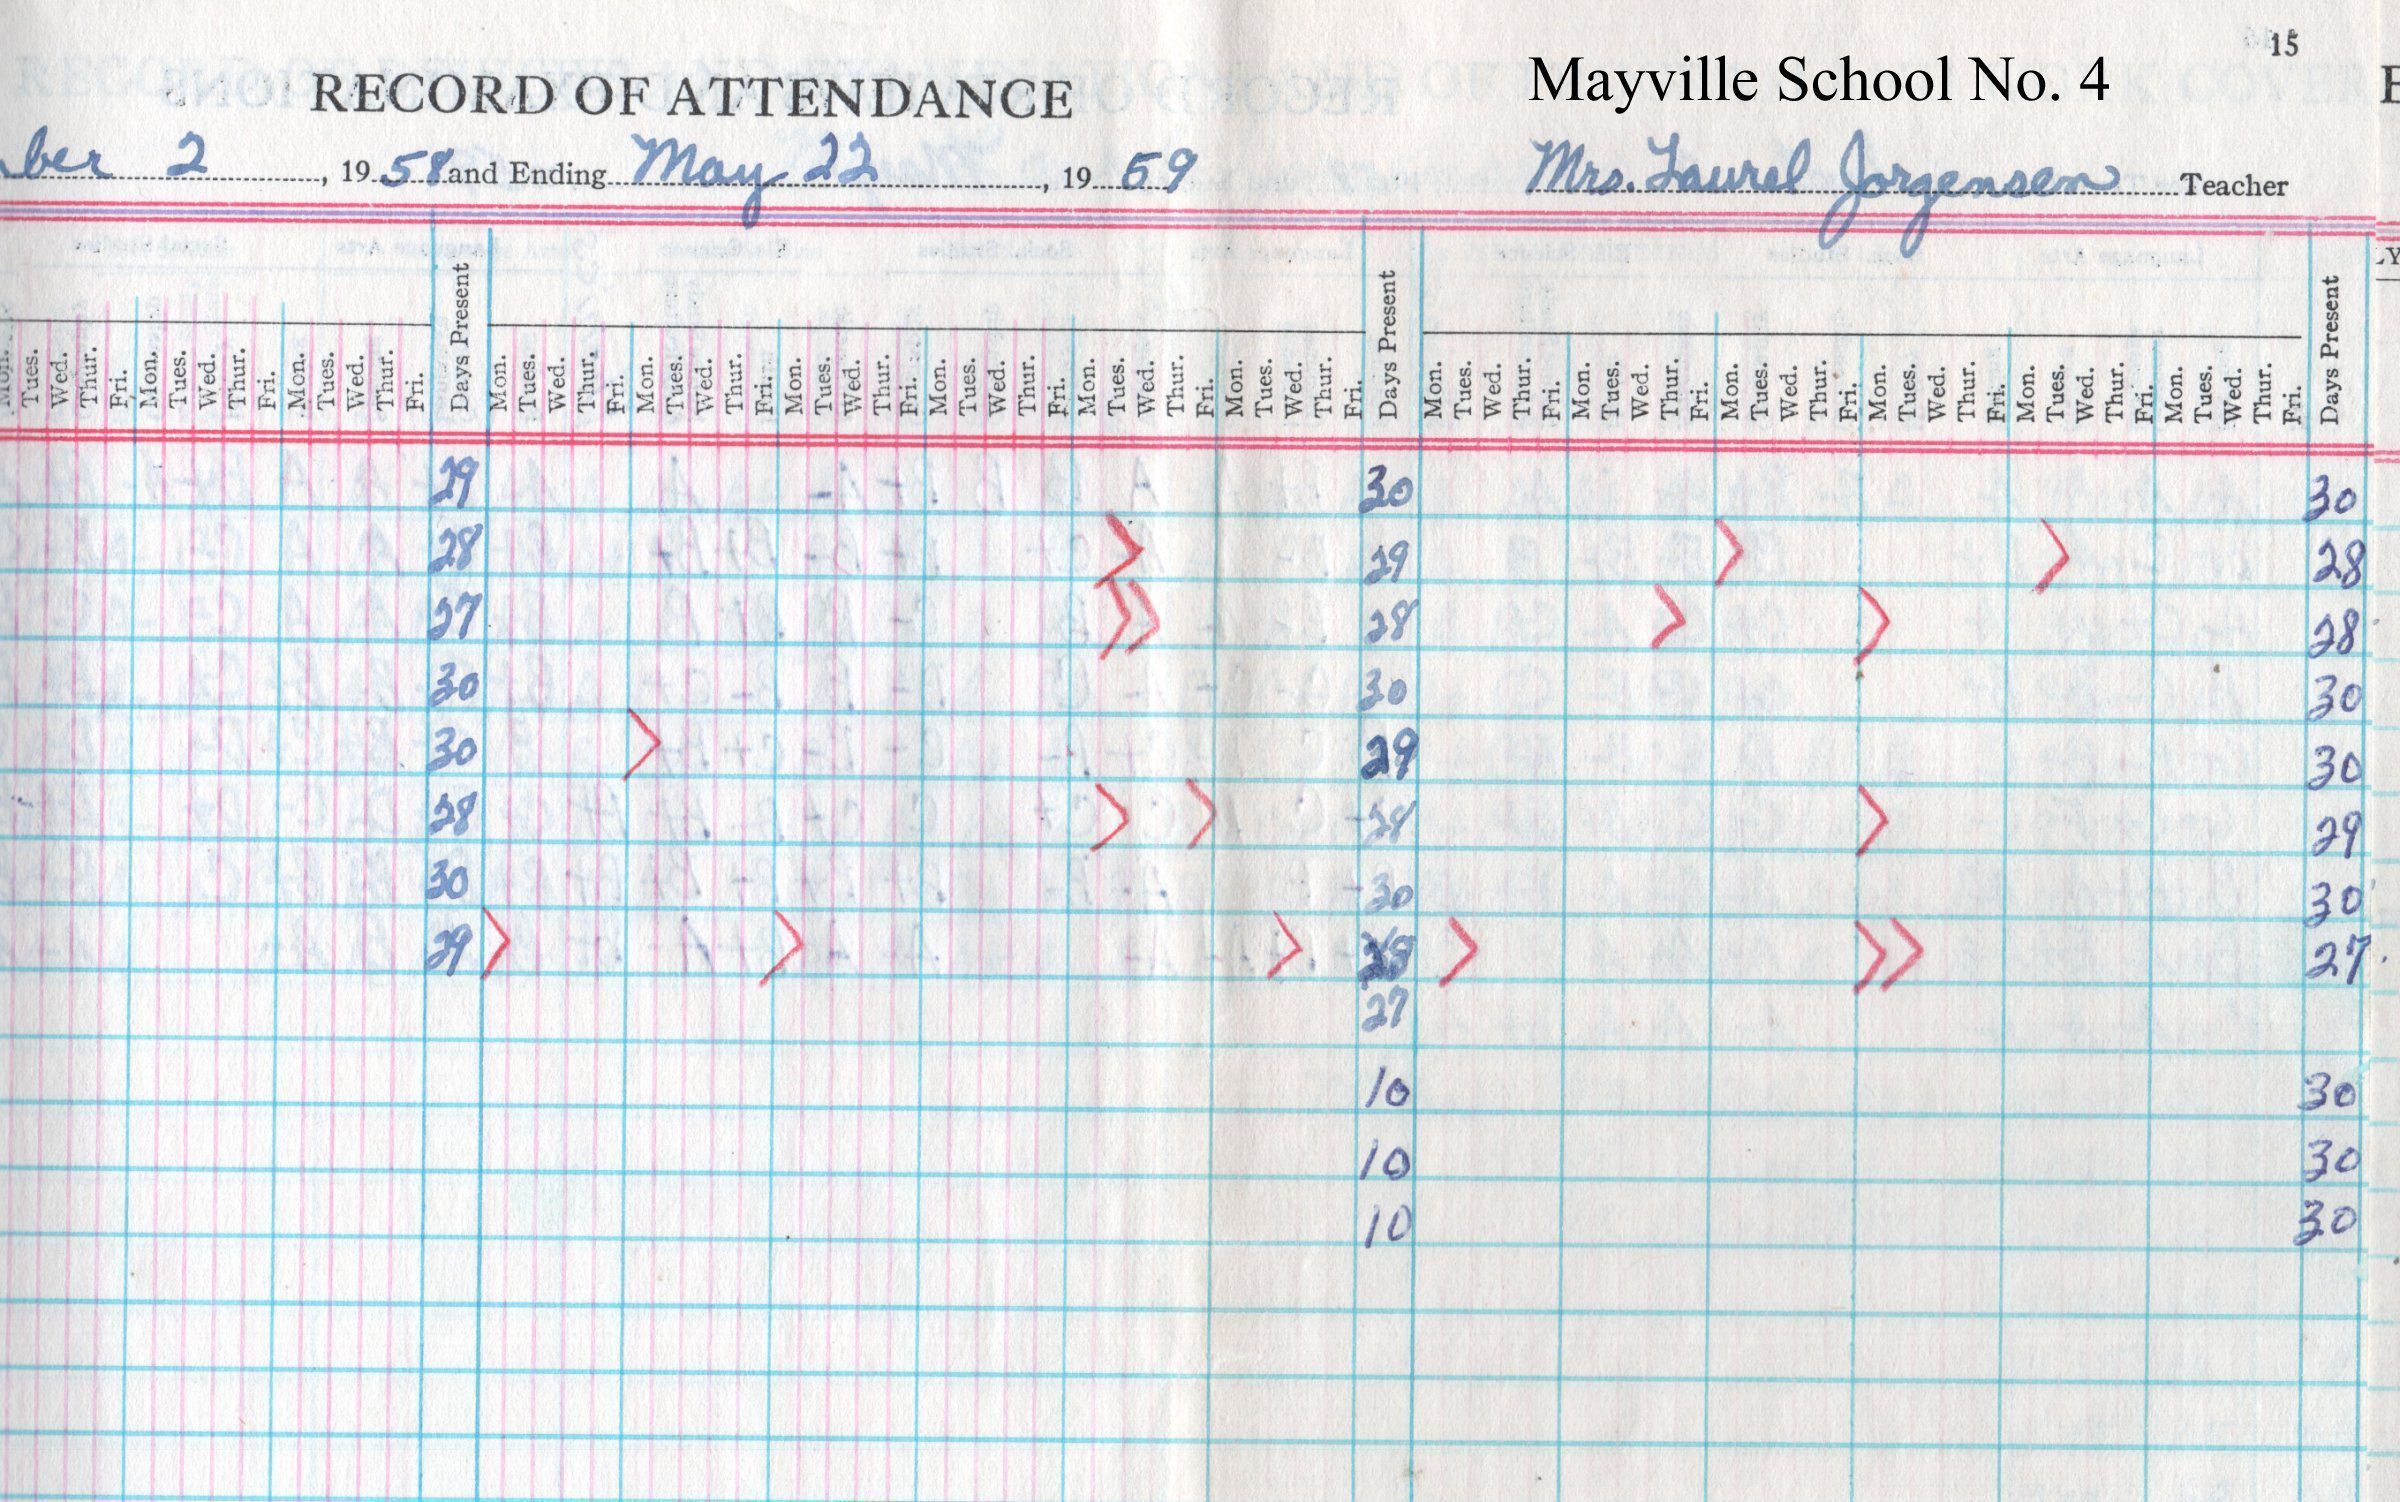 15
RECORD OF ATTENDANCE Mayville School No. 4
ber 2, 1958 and Ending May 22, 1959 Mrs. Laurel Jorgensen Teacher
Mon. Tues. Wed. Thur. Fri. Mon. Tues. Wed. Thur. Fri. Mon. Tues. Wed. Thur. Fri. Days Present Mon. Tues. Wed. Thur. Fri. Mon. Tues. Wed. Thur. Fri. Mon. Tues. Wed. Thur. Fri. Mon. Tues. Wed. Thur. Fri. Mon. Tues. Wed. Thur. Fri. Mon. Tues. Wed. Thur. Fri. Days Present Mon. Tues. Wed. Thur. Fri. Mon. Tues. Wed. Thur. Fri. Mon. Tues. Wed. Thur. Fri. Mon. Tues. Wed. Thur. Fri. Mon. Tues. Wed. Thur. Fri. Mon. Tues. Wed. Thur. Fri. Days Present
29 30 30
28 29 28
27 28 28
30 30 30
30 29 30
28 28 29
30 30 30
29 27
27
10 30
10 30
10 30